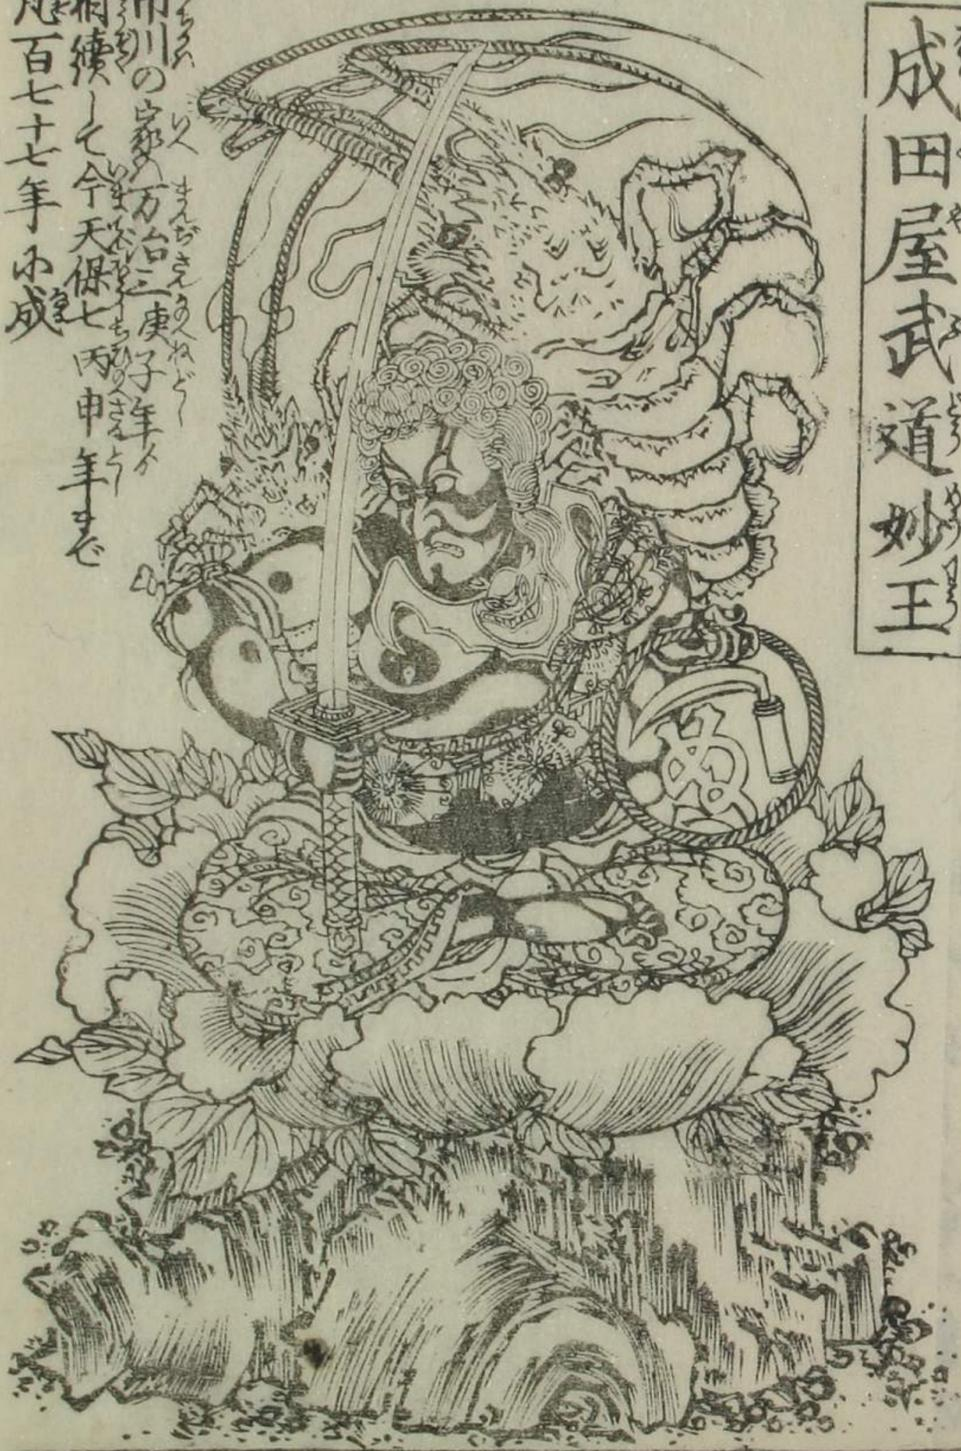 成田屋武道妙王
市川の家ハ万治三庚子年ゟ
相續して今天保七丙申年まで
凡百七十七年に成